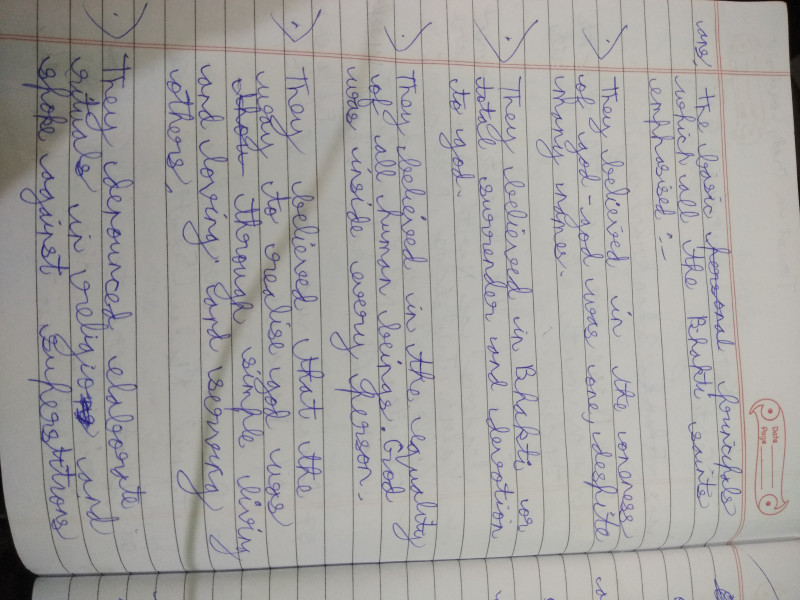 Date
Page
ans, The basic personal principals
which all the Bhakti saints
emphasised :-
They believed in the oneness
of god - god was one, despite
many names.
They believed in Bhakti or
total surrender and devotion
to god.
They believed in the equality
of all human beings. God
was inside every person.
They believed that the
way to realise god was
through simple living
and loving and serving
others.
They denounced elaborate
rituals in religion and
spoke against superstitions